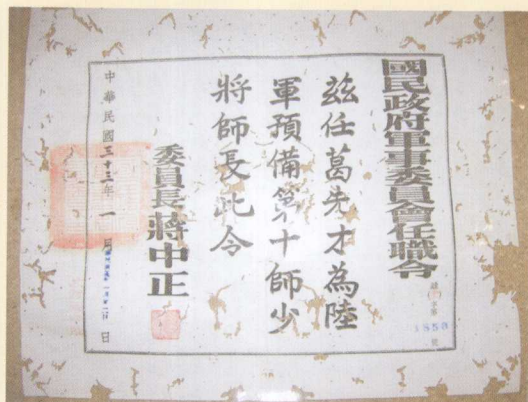 國民政府軍事委員會任職令
茲任葛先才為陸
軍預備第十師少
將師長此令
委員長蔣中正
中華民國三十三年一月 日